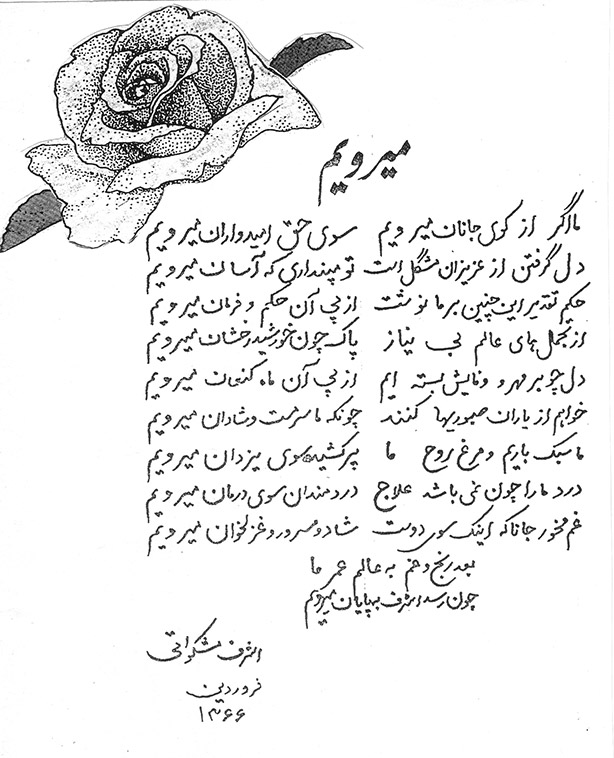 میرویم
ما اگر از کوی جانان میرویم سوی حق امیدواران میرویم
دل گرفتن از عزیزان مشگل است تو مپنداری که آسان میرویم
حکم تقدیر این چنین بر ما نوشت از پی آن حکم و فرمان میرویم
از تجمل های عالم بی نیاز پاک چون خورشید رخشان میرویم
دل چو بر مهر و وفایش بسته ایم از پی آن ماه کنعان میرویم
خواهم از یاران صبوریها کنند چونکه ما سرمست و شادان میرویم
ما سبک باریم و مرغ روح ما پر کشید سوی یزدان میرویم
درد ما را چون نمی باشد علاج دردمندان سوی درمان میرویم
غم مخور جانا که اینک سوی دوست شاد و مسرور و غزلخوان میرویم
بعد رنج و غم به عالم عمر ما
چون رسد اشرف بپایان میرویم
اشرف مشکواتی
فروردین
۱۳۶۶